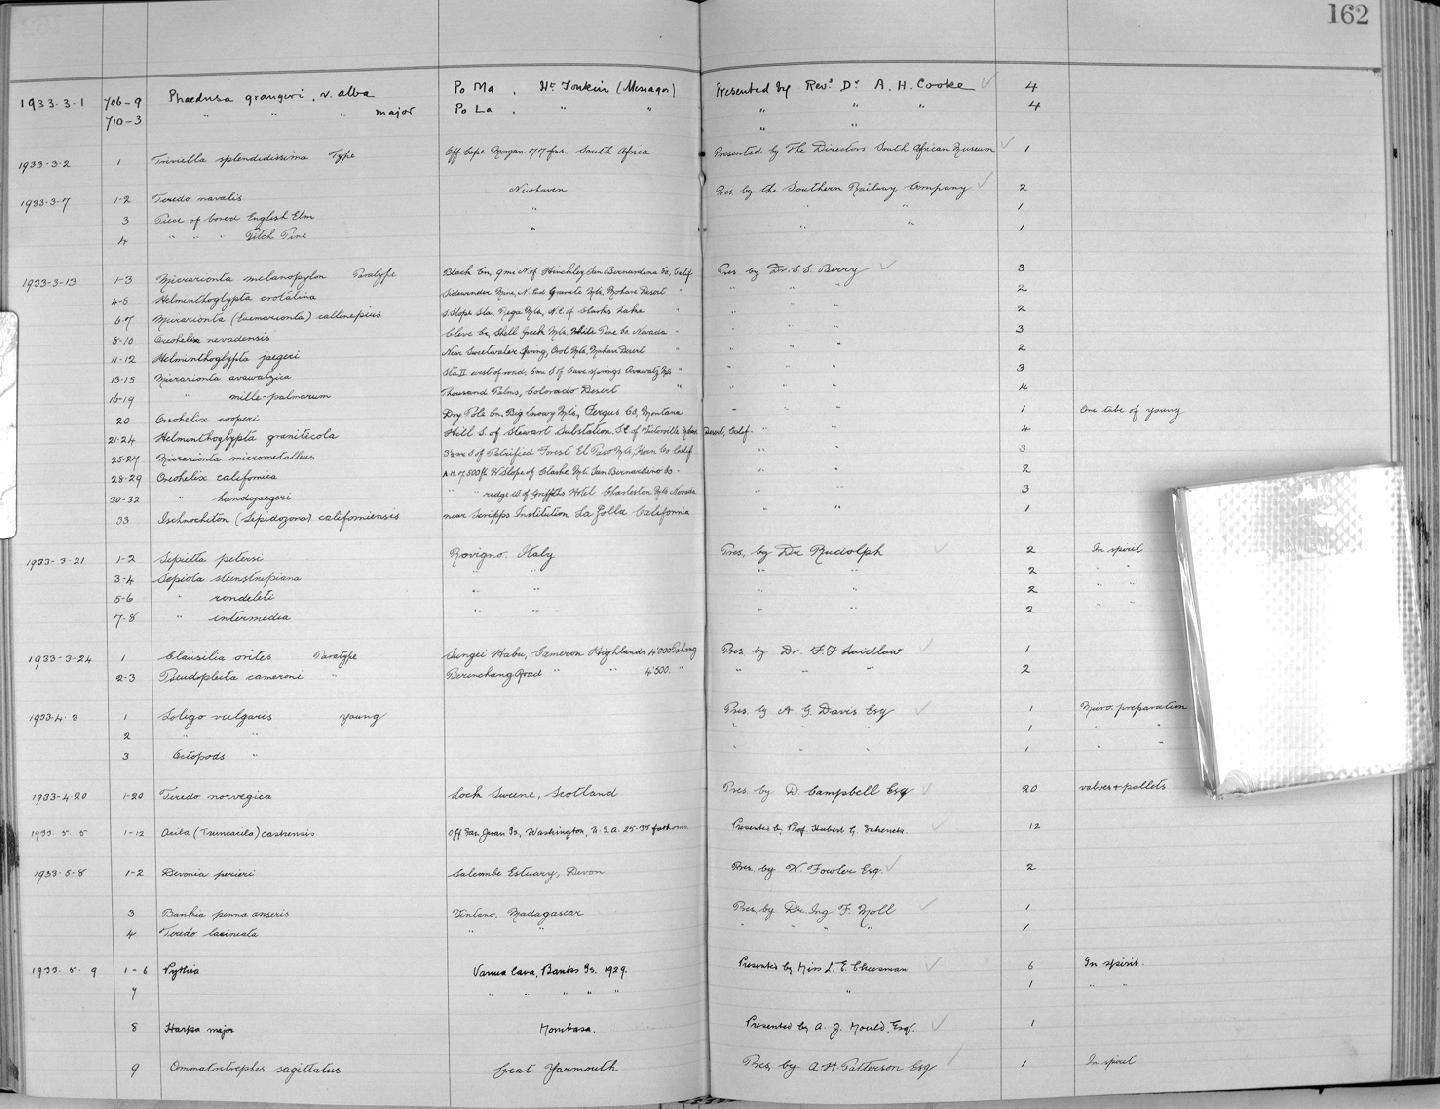 162
1933.3.1 706-9 Phaedusa grangeri, v. alba Po Ma, Hte Tonkin (Mesnager) Presented by Revd Dr A. H. Cooke 4
710-3 " " " major Po La, " " " " " 4
" "
1933-3-2 1 Triviella splendidissima Type Off Cape Morgan. 77 fms. South Africa Presented by The Directors South African Museum 1
1933-3-7 1-2 Teredo navalis Newhaven Pres. by the Southern Railway Company 2
3 Piece of bored English Elm " " " 1
4 " " " Pitch Pine " " " 1
1933-3-13 1-3 Micrarionta melanopylon Paratype Black Cn, 9 mi N. of Hinckley, San Bernardino Co, Calif Pres. by Dr. S. S. Berry 3
4-5 Helminthoglypta crotalina Sidewinder Mine, N. End Granite Mts, Mohave Desert " " " " 2
6-7 Micrarionta (Eremarionta) callinepius S. Slope Sta. Rosa Mts, N.E. of Clarks Lake " " " 2
8-10 Oreohelix nevadensis Cleve Ck, Shell Creek Mts, White Pine Co. Nevada " " " 3
11-12 Helminthoglypta jaegeri Near Sweetwater Spring, Ord Mts, Mohave Desert " " " 2
13-15 Micrarionta avawatzica Sta II west of road, 6 mi S of Cave springs Avawatz Mts " " " 3
15-19 " mille-palmarum Thousand Palms, Colorado Desert " " " 4
20 Oreohelix cooperi Dry Pole Cn, Big Snowy Mts, Fergus Co, Montana " " " 1 One tube of young
21-24 Helminthoglypta graniticola Hill S. of Stewart Substation. S.E. of Victorville Mohave Desert, Calif. " " 4
25-27 Micrarionta micrometalleus 3½ mi S of Petrified Forest El Paso Mts, Kern Co Calif " " 3
28-29 Oreohelix california Alt. 7,500 ft N Slope of Clarke Mt. San Bernardino Co " " " 2
30-32 " handi jaegeri " " ridge W. of Griffiths Hotel Charleston Mts Nevada " " 3
33 Ischnochiton (Lepidozona) californiensis near Scripps Institution La Jolla California " " 1
1933-3-21 1-2 Sepietta petersi Rovigno. Italy Pres. by Dr Rudolph 2 In spirit
3-4 Sepiola steenstrupiana " " " " 2 " "
5-6 " rondeleti " " " " 2 " "
7-8 " intermedia " " " " 2 " "
1933-3-24 1 Clausilia orites Paratype Sungei Habu, Cameron Highlands 4'000 Pahang Pres. by Dr. F. F Laidlaw 1
2-3 Pseudoplecta cameroni " Berinchang Road " " 4'500. " " " 2
1933-4-3 1 Loligo vulgaris young Pres. by A G. Davis Esq 1 Micro. preparation
2 " " " " " 1 " "
3 Octopods " " " " 1 " "
1933-4.20 1-20 Teredo norvegica Loch Sweene, Scotland Pres. by D. Campbell Esq 20 valves + pallets
1933.5.5 1-12 Acila (Truncacila) castrensis Off San Juan Is, Washington, U.S.A. 25-35 fathoms. Presented by Prof. Hubert G. Schenck. 12
1933-5-8 1-2 Devonia perrieri Salcombe Estuary, Devon Pres. by Fowler Esq. 2
3 Bankia penna anseris Madagascar Pres. by Dr. Ing F. Moll 1
4 Teredo laciniata " " " " " " 1
1933.5.9 1-6 Pythia Vanua Lava, Banks Is. 1929. Presented by Miss L. E. Cheesman 6 In spirit.
7 " " " " " " 1 " "
8 Harpa major Mombasa. Presented by A. J. Mould, Esq. 1
9 Ommatostrephes sagittatus Great Yarmouth Pres. by A. H. Patterson Esq 1 In spirit